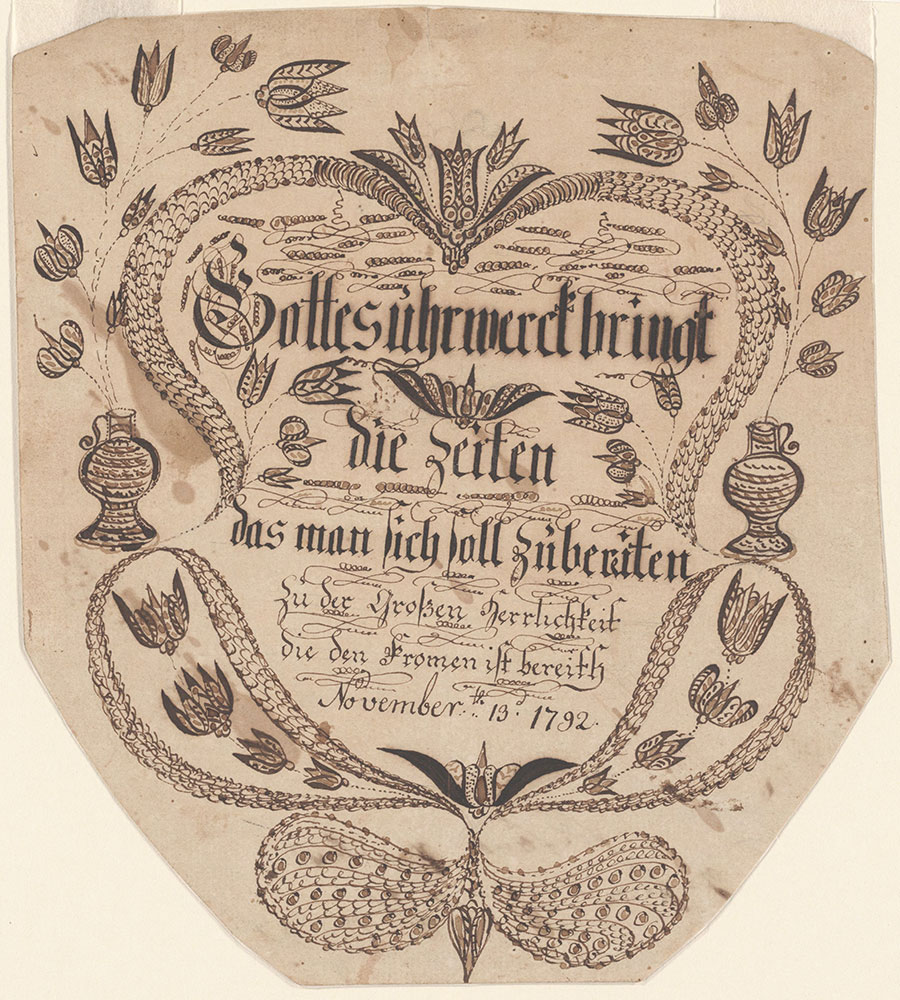 Gottes uhrwerck bringt
die zeiten
das man sich soll zübereiten
Zu der Großen Herrlichkeit
die den Fromen ist bereith
November: 13th 1792.